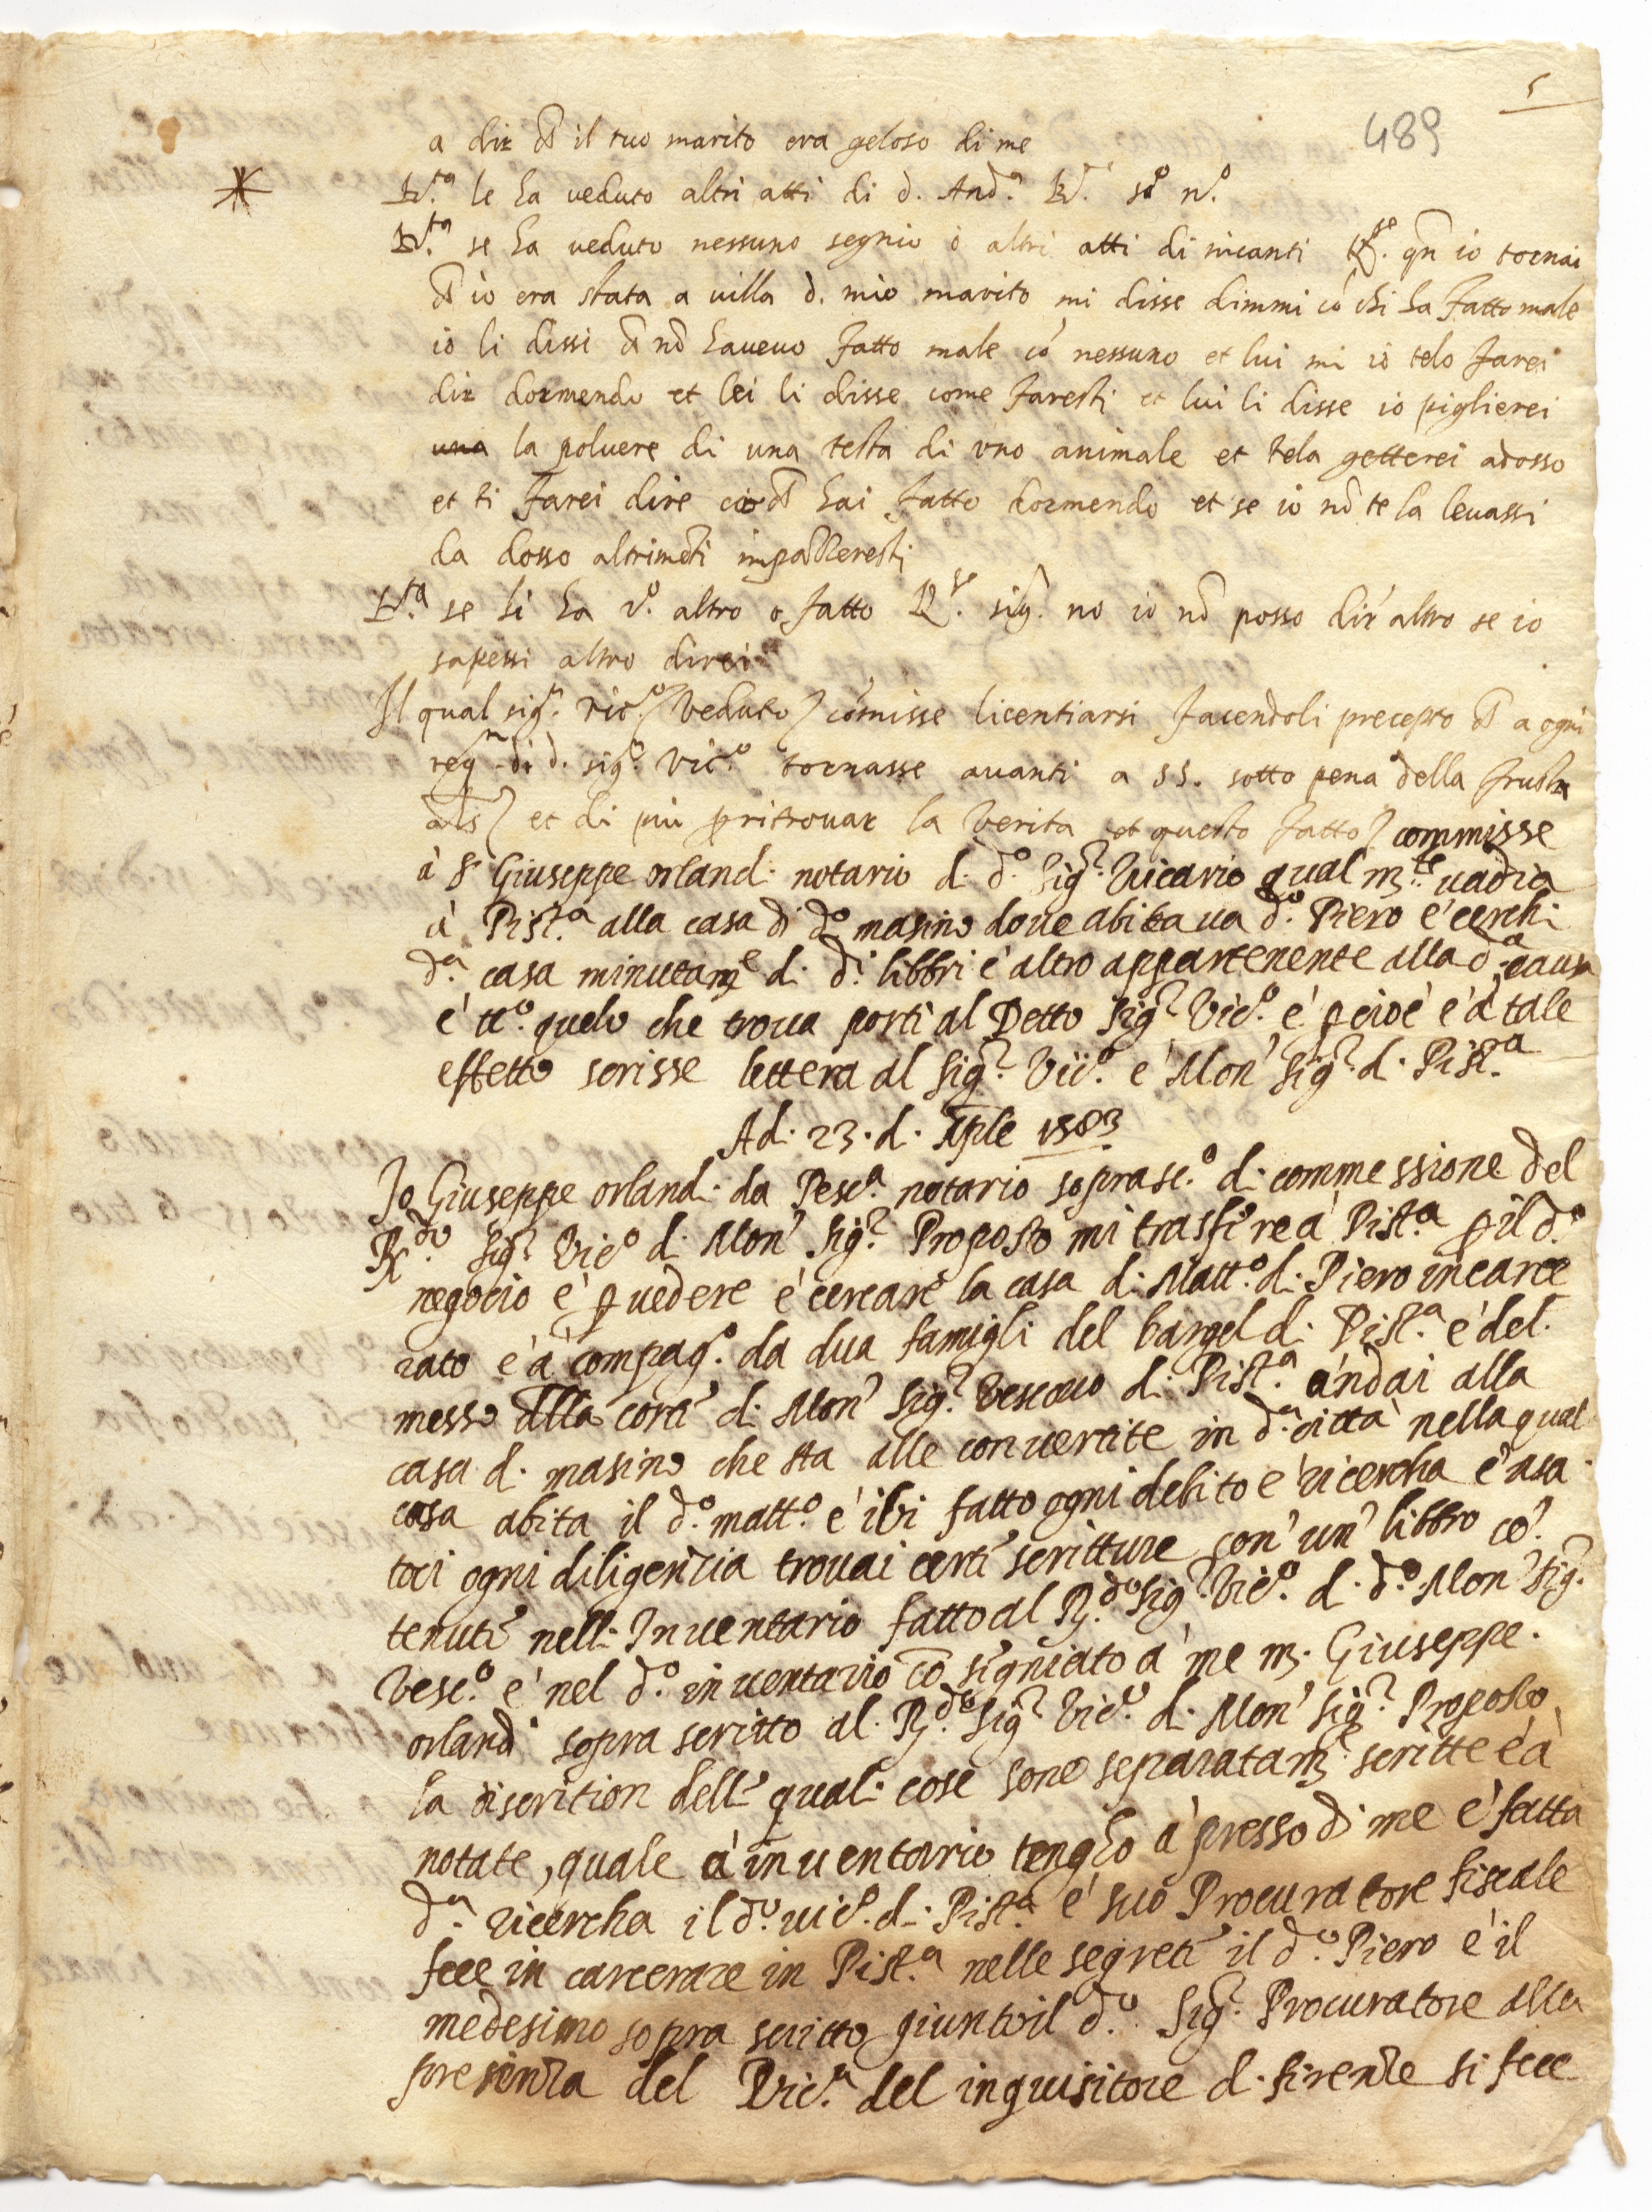 5
489
a dir ch il tuo marito era geloso di me
* Int.ta se ha veduto altri atti di d. And.a R. sig. n.o
Int.ta se ha veduto nessuno segnio o altri atti di incanti R.se qn io tornai
ch io era stata a villa d. mio marito mi disse dimmi cō chi ha fatto male
io li dissi ch nō havevo fatto male cō nessuno et lui mi io telo farei
dir dormendo et lei li disse come faresti et lui li disse io piglierei
una la polvere di una testa di uno animale et tela getterei adosso
et ti farei dire ciò ch hai fatto dormendo et se io nō te la levassi
da dosso altrimēti impazzeresti
Int.ta se li ha d.o altro o fatto R.se sig. no io nō posso dir altro se io
sapessi altro direi
Il qual sig.r vic.o veduto cōmisse licentiarsi facendoli precepto ch a ogni
req.n di d. sig.r vic.o tornasse avanti a SS. sotto pena della frusta
et di più p ritrovar la verità et questo fatto commisse
à S Giuseppe orland. notario d. d.o Sig.r Vicario qual m.te vadia
à Pist.a alla casa di d.o masino dove abitava d.o Piero e cerchi
d.a casa minutam.e d. d.i libbri è altro appartenente alla d.a causa
è tt.o quelo che trova porti al Detto Sig.r Vic.o è p ciòe è à tale
effetto scrisse lettera al Sig.r Vic.o e Mon Sig.r d. Pist.a
Ad. 23. d. Aple 1583
Io Giuseppe orland. da Pesc.a notario soprasc.o d. commessione del
R.do Sig.r Vic.o d. Mon Sig.r Proposto mi trasfire à Pist.a p il d.o
negocio è p vedere è cercare la casa d. Matt.o d. Piero incarce
rato è à compag.o da dua famigli del bargel d. Pist.a è del
messo dlla corte d. Mon Sig.r Vescovo d. Pist.a andai alla
casa d. masino che sta alle convertite in d.a città nella qual
casa abita il d.o matt.o è ivi fatto ogni debito e ricercha è asa
toci ogni diligenzia trovai certi scritture con un libbro cō
tenuti nell. Inventario fatto al R.do Sig.r Vic.o d. d.o Mon Sig.r
Vesc.o è nel d.o inventario cō signiato à me m. Giuseppe
orlandi sopra scritto al R.do Sig.r Vic.o d. Mon Sig.r Proposto
la discrition dell. qual. cose sono separatam.e scritte è à
notate, quale à inventario tengho à presso di me è fatta
d.a ricercha il d.o vic.o d. Pist.a è suo Procuratore fiscale
fece in carcerare in Pist.a nelle segreti il d.o Piero è il
medesimo sopra scritto giunto il d.o Sig.r Procuratore alla
presenza del Vic.o del inquisitore d. firenze si fece